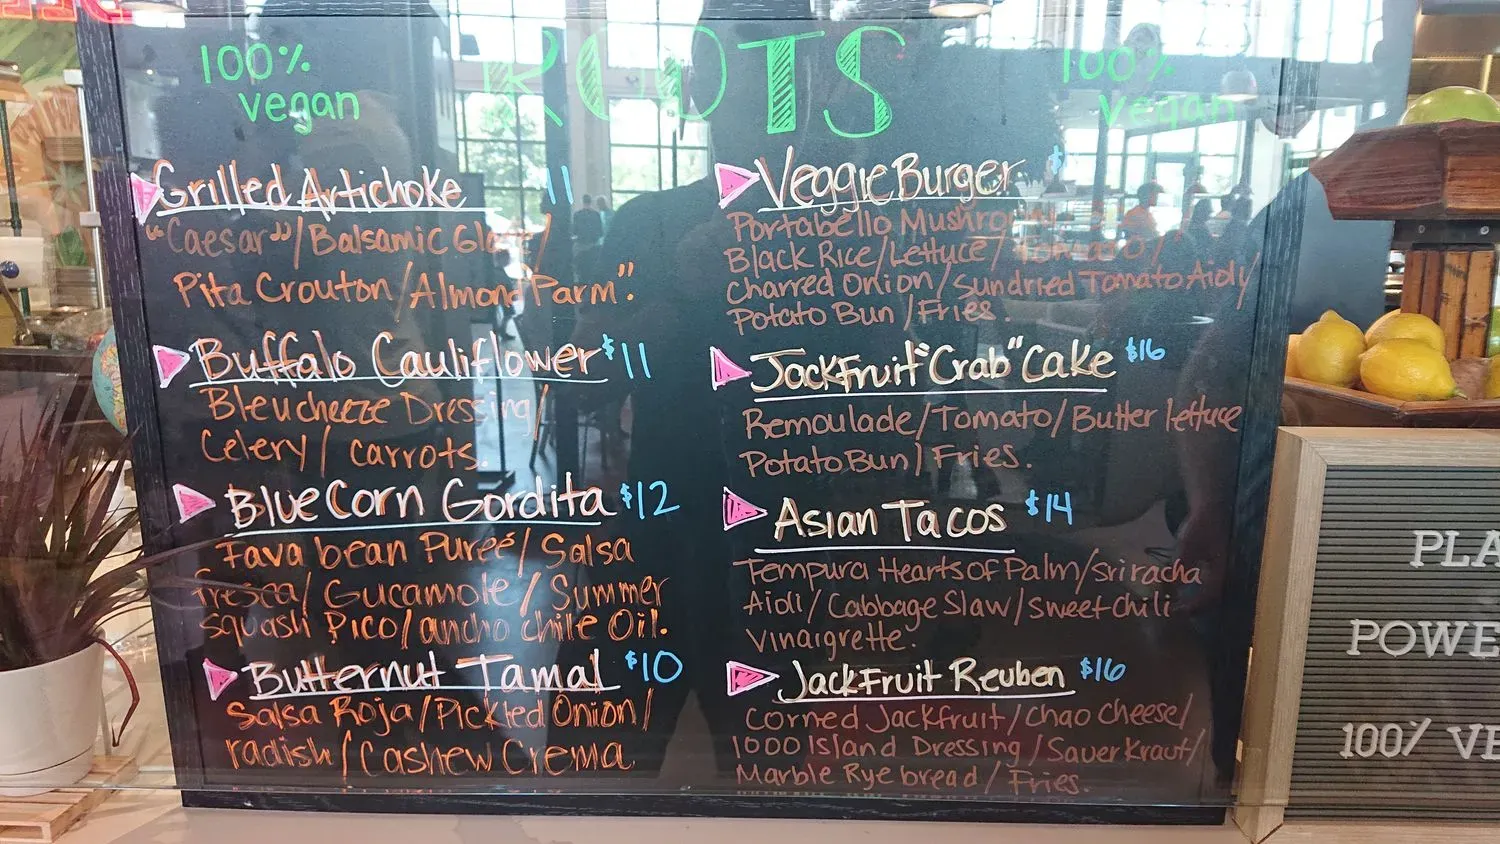 100% vegan
ROOTS
100% vegan
Grilled Artichoke 11
"Caesar"/Balsamic
Pita Crouton/Almond "Parm".
Buffalo Cauliflower $11
Bleucheeze Dressing/
Celery/ carrots.
Blue Corn Gordita $12
Fava bean Pureé/ Salsa
fresca/ Gucamole/ Summer
squash Pico/ancho chile Oil.
Butternut Tamal $10
Salsa Roja/Pickled Onion/
radish/Cashew Crema
Veggie Burger $
Portabello
Black Rice/Lettuce/
Charred Onion/sundried Tomato Aioli/
Potato Bun/Fries.
Jackfruit "Crab" Cake $16
Remoulade/Tomato/Butter lettuce
Potato Bun/Fries.
Asian Tacos $14
Tempura Hearts of Palm/sriracha
Aioli/Cabbage Slaw/sweet chili
Vinaigrette.
Jackfruit Reuben $16
Corned Jackfruit/Chao cheese/
1000 Island Dressing/SauerKraut/
Marble Rye bread/Fries.
PLA
POWE
100% VE